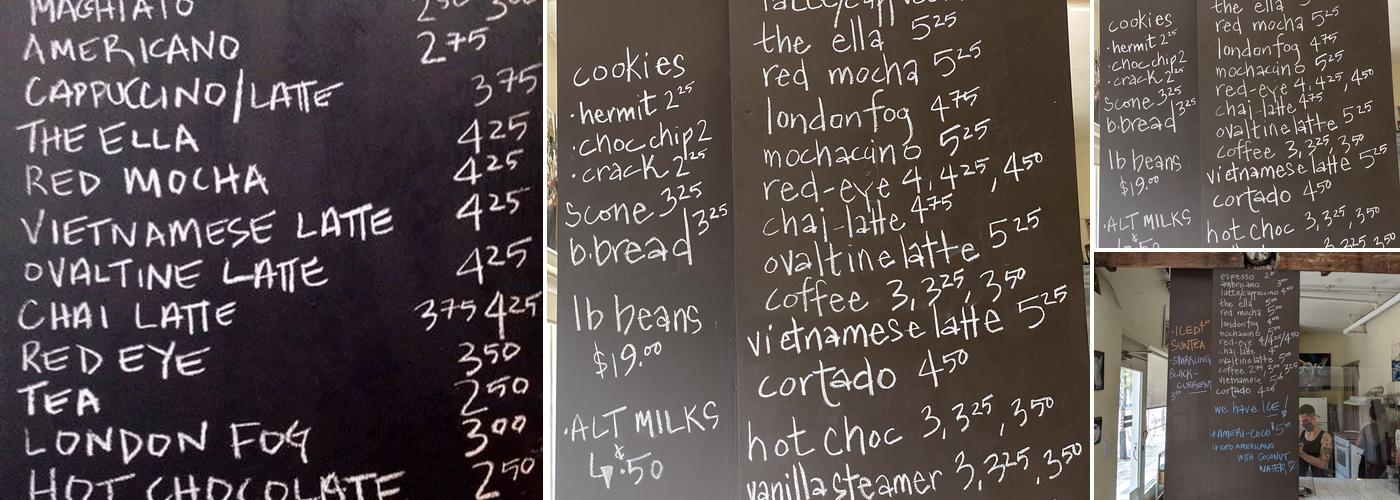 MACHIATO 2⁵⁰ 3⁰⁰
AMERICANO 2⁷⁵
CAPPUCCINO/LATTE 3⁷⁵
THE ELLA 4²⁵
RED MOCHA 4²⁵
VIETNAMESE LATTE 4²⁵
OVALTINE LATTE 4²⁵
CHAI LATTE 3⁷⁵ 4²⁵
RED EYE 3⁵⁰
TEA 2⁵⁰
LONDON FOG 3⁰⁰
HOT CHOCOLATE 2⁵⁰
cookies
·hermit 2²⁵
·choc chip 2
·crack 2²⁵
scone 3²⁵
b.bread 3²⁵
lb beans
$19.⁰⁰
·ALT MILKS
$.50
the ella 5²⁵
red mocha 5²⁵
londonfog 4⁷⁵
mochacino 5²⁵
red-eye 4, 4²⁵, 4⁵⁰
chai-latte 4⁷⁵
ovaltine latte 5²⁵
coffee 3, 3²⁵, 3⁵⁰
vietnamese latte 5²⁵
cortado 4⁵⁰
hot choc 3, 3²⁵, 3⁵⁰
vanilla steamer 3, 3²⁵, 3⁵⁰
cookies
·hermit 2²⁵
·choc chip 2
·crack 2²⁵
scone 3²⁵
b.bread 3²⁵
lb beans
$19.⁰⁰
·ALT MILKS
the ella
red mocha 5²⁵
londonfog 4⁷⁵
mochacino 5²⁵
red-eye 4, 4²⁵, 4⁵⁰
chai-latte 4⁷⁵
ovaltine latte 5²⁵
coffee 3, 3²⁵, 3⁵⁰
vietnamese latte 5²⁵
cortado 4⁵⁰
hot choc 3, 3²⁵, 3⁵⁰
·ICED
SUNTEA
·SPARKLING
BLACK-
CURRENT
espresso
americano
latte/cappuccino
the ella
red mocha
londonfog
mochacino
red-eye 4/4²⁵/4⁵⁰
chai-latte
ovaltine latte
coffee
vietnamese
cortado
we have ICE!
AMERI-COCO
ICED AMERICANO
WITH COCONUT
WATER